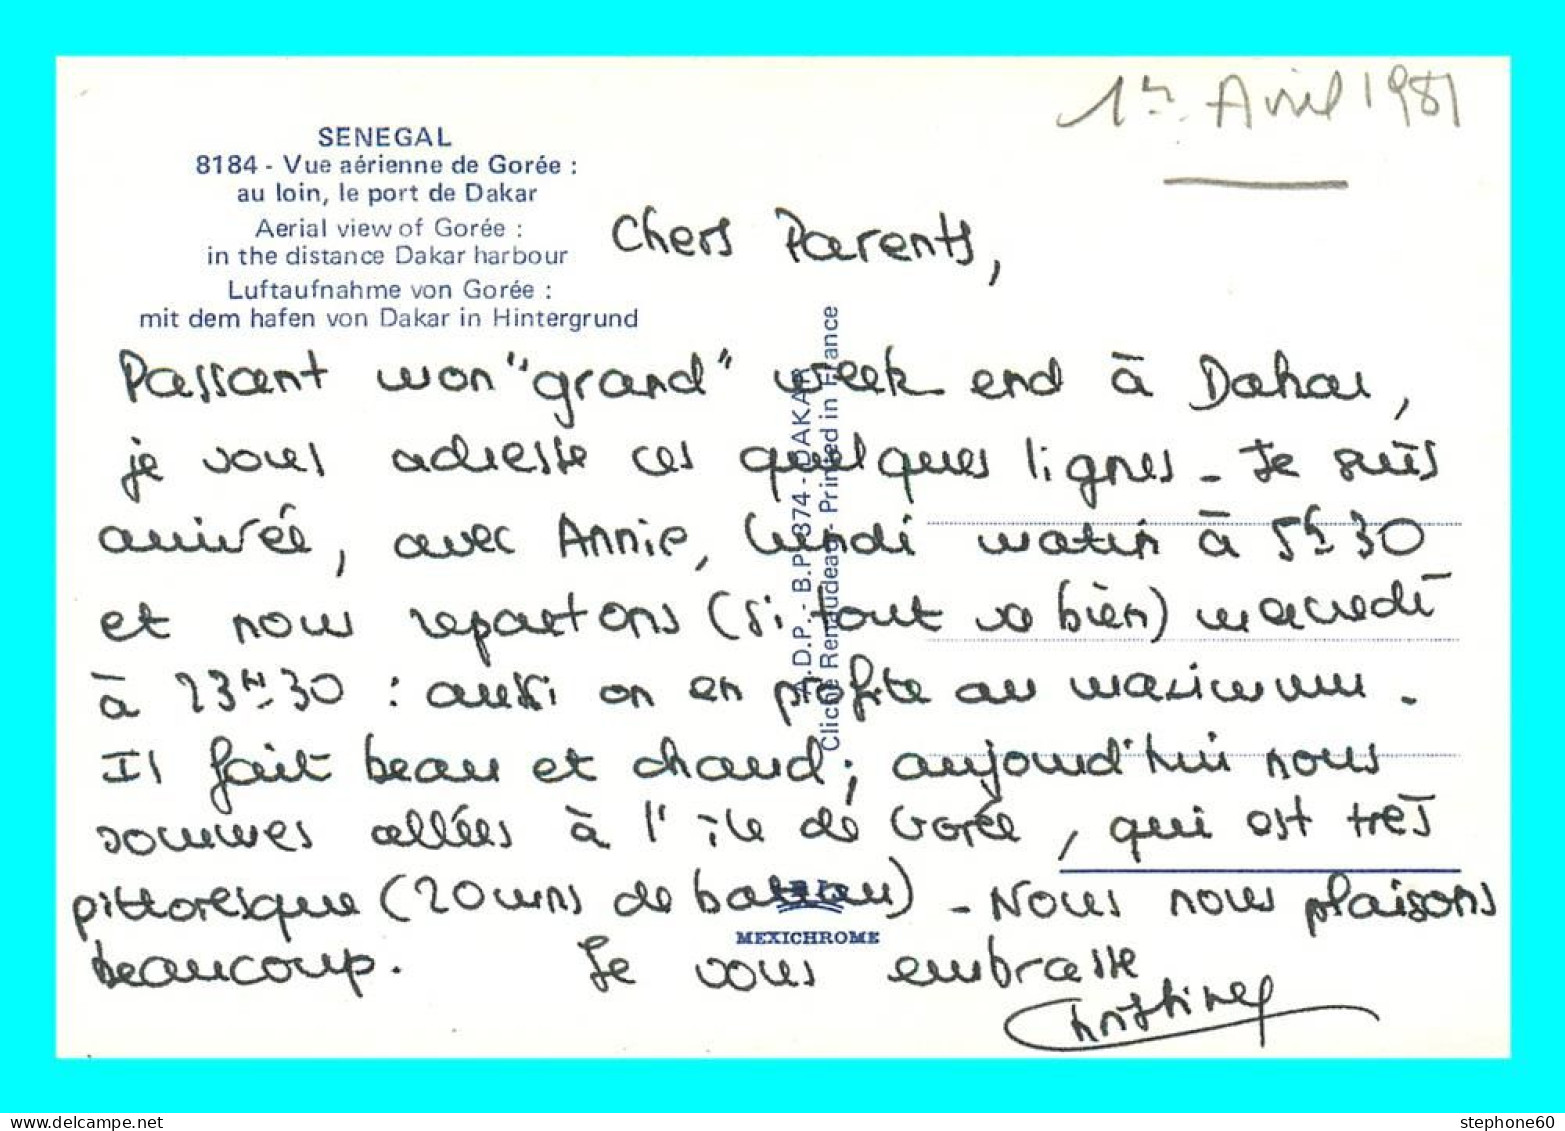 1er Avril 1981
SENEGAL
8184 - Vue aérienne de Gorée :
au loin, le port de Dakar
Aerial view of Gorée :
in the distance Dakar harbour
Luftaufnahme von Gorée :
mit dem hafen von Dakar in Hintergrund
Chers Parents,
Passant mon "grand" week end à Dakar,
je vous adresse ces quelques lignes - Je suis
arrivée, avec Annie, lundi matin à 5h30
et nous repartons (si tout va bien) mercredi
à 23h30 : aussi on en profite au maximum -
Il fait beau et chaud ; aujourd'hui nous
sommes allées à l'île de Gorée, qui est très
pittoresque (20 mins de bateau) - Nous nous plaisons
beaucoup. Je vous embrasse
Christine
A.D.P. - B.P. 374 - DAKAR
Cliché Renaudeau - Printed in France
MEXICHROME
stephone60